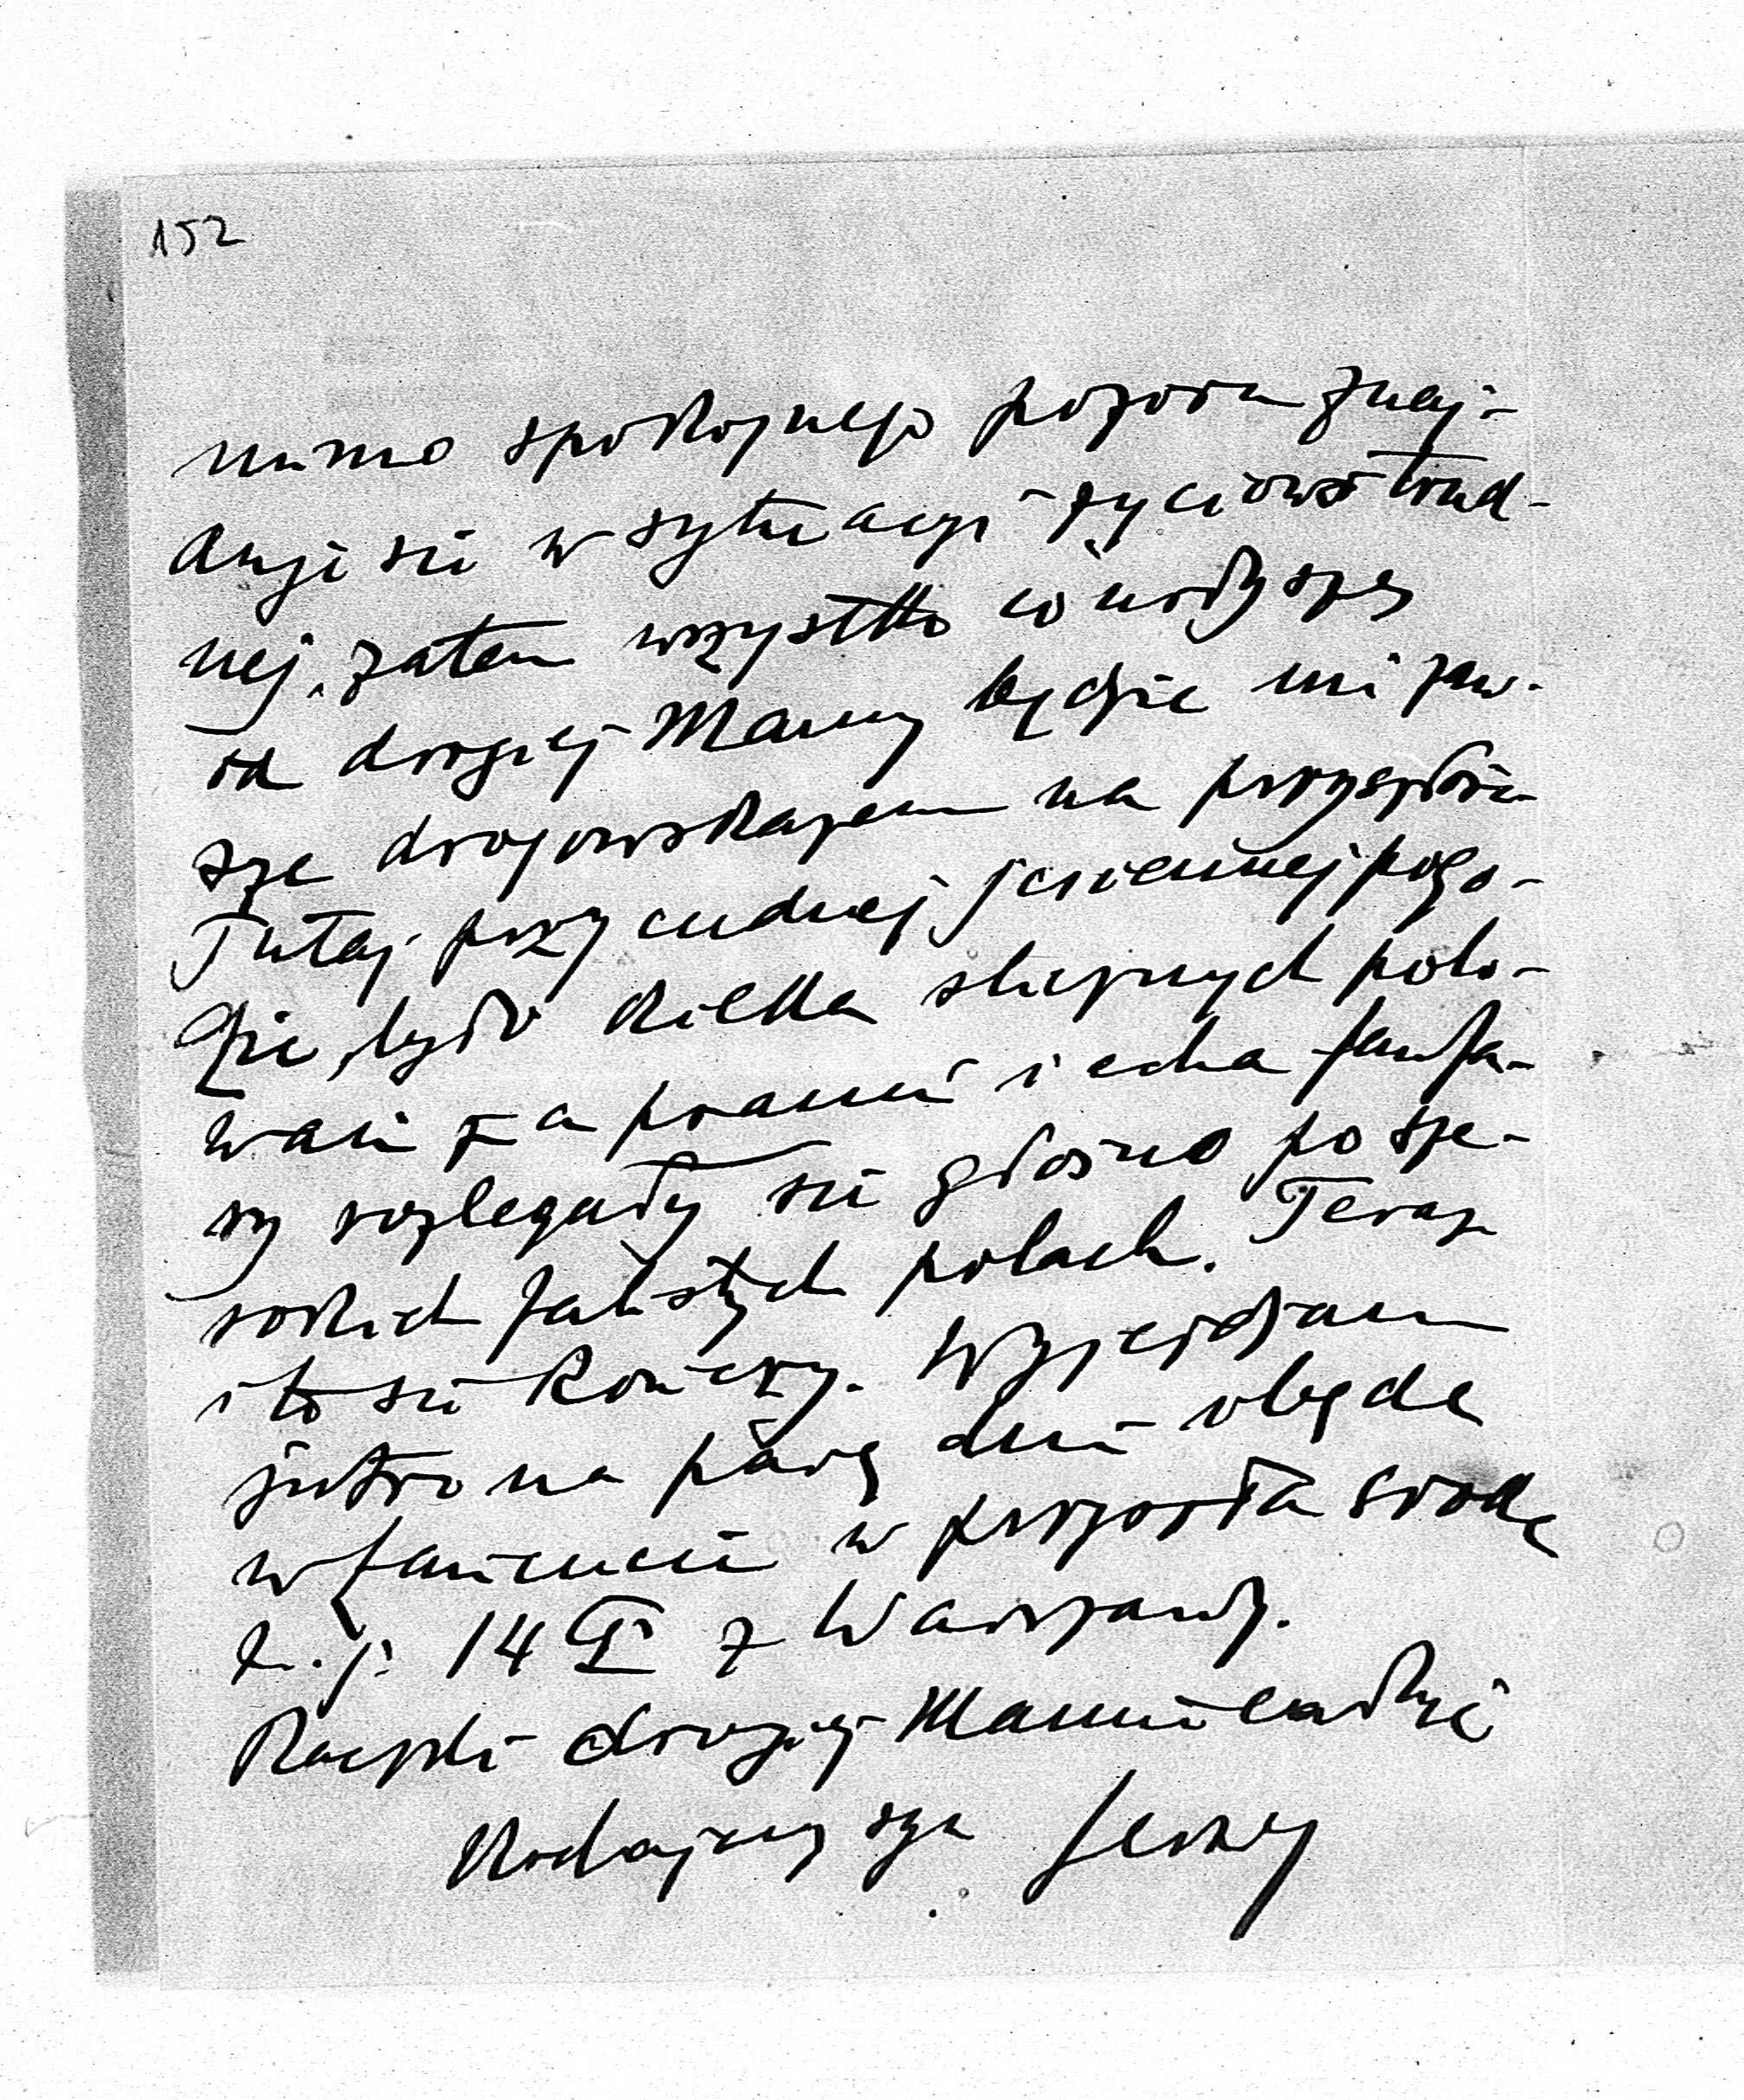 152
mimo spokojnego pozoru znaj-
duję się w sytuacji życiowo trud-
nej, zatem wszystko co usłyszę
od drogiej Mamy będzie mi zaw-
sze drogowskazem na przyszłość.
Tutaj przy cudnej jesiennej pogo-
dzie, było kilka ślicznych polo-
wań za psami i echa fanfa-
ry rozlegały się głośno po sze-
rokich falistych polach. Teraz
i to się kończy. Wyjeżdżam
jutro na parę dni i będę
w Łańcucie w przyszłą środę
t.j. 14 X z Warszawy.
Rączki drogiej Mamie całuję
Kochający syn Jerzy